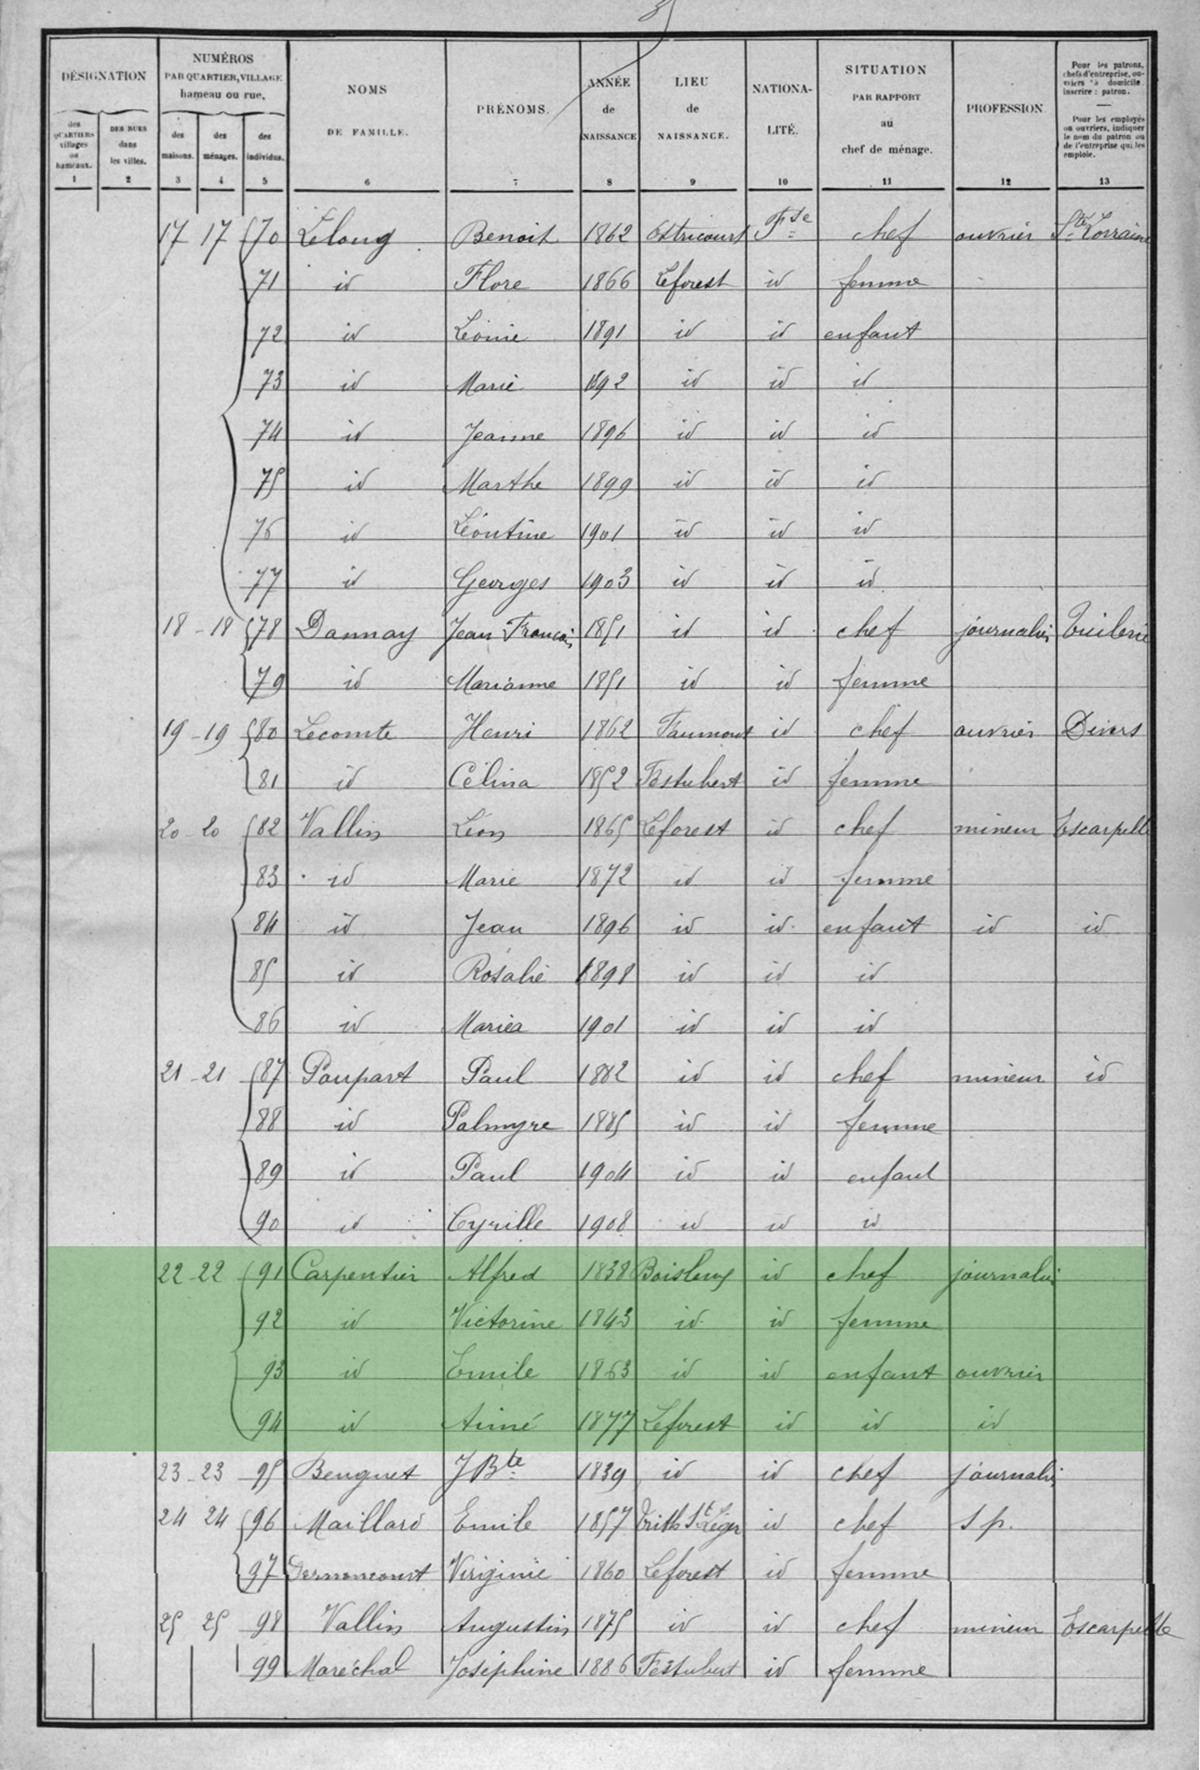 DÉSIGNATION
NUMÉROS PAR QUARTIER, VILLAGE hameau ou rue.
NOMS DE FAMILLE.
PRÉNOMS.
ANNÉE de NAISSANCE
LIEU de NAISSANCE.
NATIONA-LITÉ.
SITUATION PAR RAPPORT au chef de ménage.
PROFESSION.
Pour les patrons, chefs d'entreprise, ouvriers à domicile inscrire : patron.
Pour les employés ou ouvriers, indiquer le nom du patron ou de l'entreprise qui les emploie.
des QUARTIERS villages ou hameaux.
DES RUES dans les villes.
des maisons.
des ménages.
des individus.
1 2 3 4 5 6 7 8 9 10 11 12 13
17 17 70 Lelong Benoit 1862 Ostricourt Fse chef ouvrier Ste Lorraine
71 id Flore 1866 Leforest id femme
72 id Léonie 1891 id id enfant
73 id Marie 1892 id id id
74 id Jeanne 1896 id id id
75 id Marthe 1899 id id id
76 id Léontine 1901 id id id
77 id Georges 1903 id id id
18 - 18 78 Dannay Jean Francois 1851 id id chef journalier Tuilerie
79 id Marianne 1851 id id femme
19 - 19 80 Lecomte Henri 1862 id chef ouvrier Divers
81 id Célina 1852 Festubert id femme
20 - 20 82 Vallin Léon 1865 Leforest id chef mineur Escarpelle
83 id Marie 1872 id id femme
84 id Jean 1896 id id enfant id id
85 id Rosalie 1898 id id id
86 id Maria 1901 id id id
21 - 21 87 Poupart Paul 1882 id id chef mineur id
88 id Palmyre 1885 id id femme
89 id Paul 1904 id id enfant
90 id Cyrille 1908 id id id
22 - 22 91 Carpentier Alfred 1838 Boisleux id chef journalier
92 id Victorine 1843 id id femme
93 id Emile 1863 id id enfant ouvrier
94 id Aimé 1877 Leforest id id id
23 - 23 95 Beuguet J Bte 1839 id id chef journalier
24 24 96 Maillard Emile 1857 Trith St Léger id chef s p.
97 Dernoncourt Virginie 1860 Leforest id femme
25 25 98 Vallin Augustin 1875 id id chef mineur Escarpelle
99 Maréchal Joséphine 1886 Festubert id femme